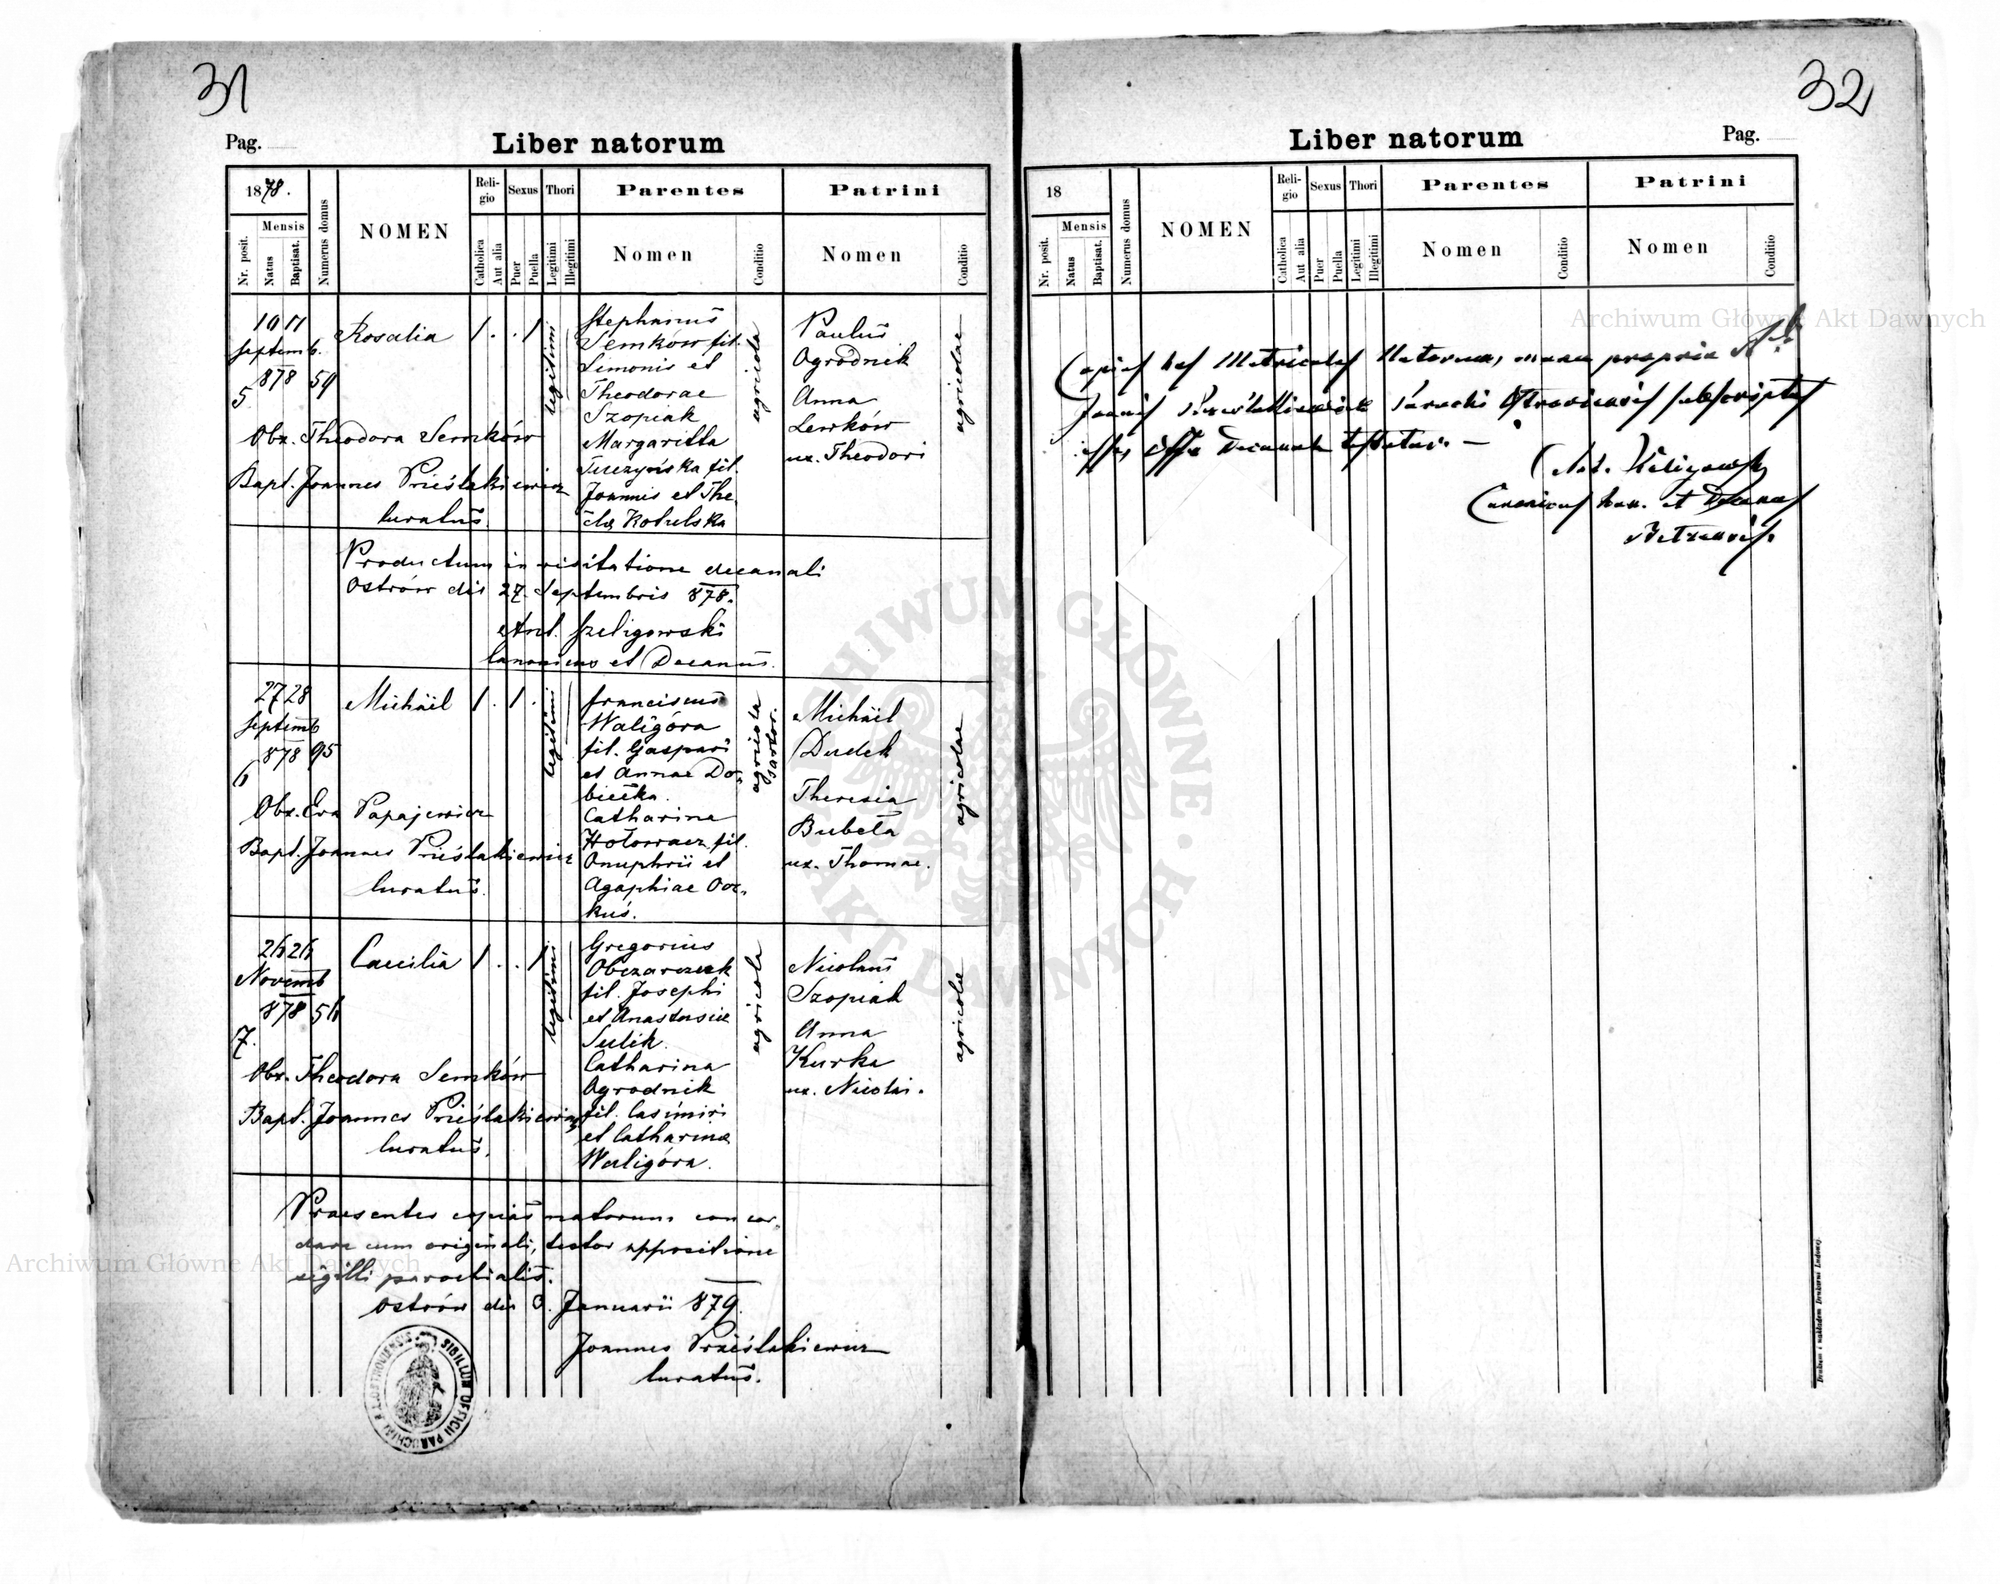 31
Pag.
Liber natorum
1878.
Nr. posit.
Mensis
Natus
Baptisat.
Numerus domus
NOMEN
Religio
Catholica
Aut alia
Sexus
Puer
Puella
Thori
Legitimi
Illegitimi
Parentes
Nomen
Conditio
Patrini
Nomen
Conditio
10 11
Septemb.
878 59
5
Rosalia 1 . . 1
legitimi
Stephanus
Semków fil.
Simonis et
Theodorae
Szopiak
Margaritta
Joannis et The
cla Kobelska
agricola
Paulus
Ogrodnik
Anna
Lewków
ux. Theodori
agricolae
Obx. Theodora Semków
Bapt. Joannes Prześlakiewicz
Curatus.
Productum in visitatione decanali
Ostrów die 27. Septembris 878.
Ant. Szeligowski
Canonicus et Decanus.
27 28
Septemb
878 95
6
Michäil 1 . 1 .
legitimi
Franciscus
Waligóra
fil. Gaspari
et Annae Do-
biecka.
Catharina
Hołowacz fil.
Onuphrii et
Agaphiae
agricola
sartor.
Michäil
Dudek
Theresia
Bubeła
ux. Thomae.
agricolae
Obx. Eva Papajewicz
Bapt. Joannes Prześlakiewicz
Curatus.
26 26
Novemb
878 56
7.
Caecilia 1 . . 1
legitimi
Gregorius
Obczarczuk
fil. Josephi
et Anastasiae
Sulik.
Catharina
Ogrodnik
fil. Casimiri
et Catharinae
Waligóra.
agricola
Nicolaus
Szopiak
Anna
Kurka
ux. Nicolai.
agricolae
Obx. Theodora Semków
Bapt. Joannes Prześlakiewicz
Curatus.
Praesentes copias natorum concor-
dare cum originali, testor appositione
sigilli parochialis.
Ostrów die 3. Januarii 879.
Joannes Prześlakiewicz
Curatus.
SIGILLUM OFFICII PAROCHIALIS
32
Liber natorum
Pag.
18
Nr. posit.
Mensis
Natus
Baptisat.
Numerus domus
NOMEN
Religio
Catholica
Aut alia
Sexus
Puer
Puella
Thori
Legitimi
Illegitimi
Parentes
Nomen
Conditio
Patrini
Nomen
Conditio
Copias has Metricales Natorum, manu propria
Joannis Prześlakiewicz Parochi Ostroviensis subscriptas
esse Offm Decanale testatur. —
Ant. Szeligowski
Canonicus hon. et Decanus
Drukiem i nakładem Drukarni Ludowej.
Archiwum Główne Akt Dawnych
Archiwum Główne Akt Dawnych
ARCHIWUM GŁÓWNE · AKT DAWNYCH ·